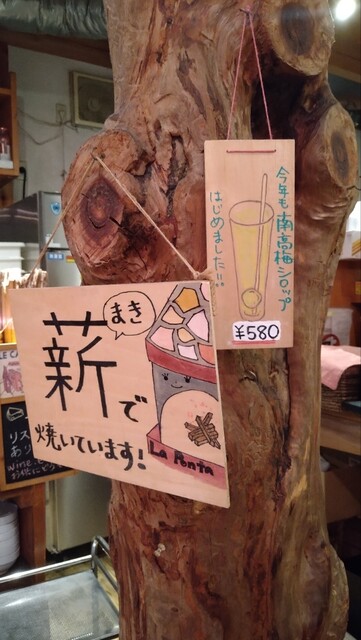 今年も南高梅シロップ
はじめました!!
¥580
まき
薪で
焼いています!
La Penta
リス
あり
wine